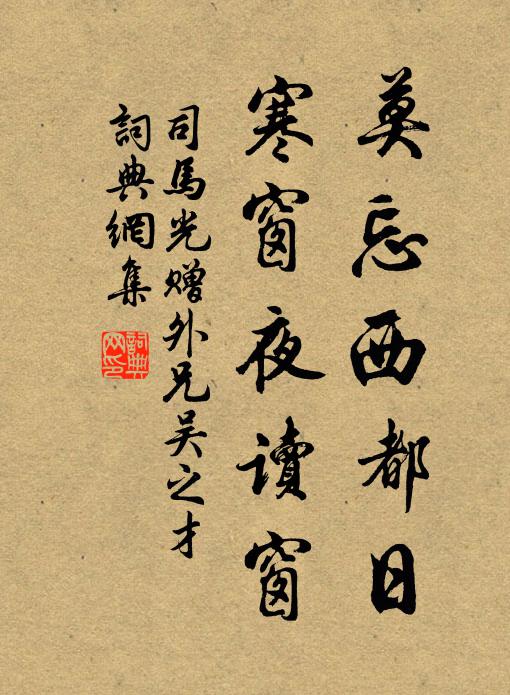 莫忘西都日
寒窗夜讀窗
司馬光贈外兄吴之才
詞典網集
詞典網印